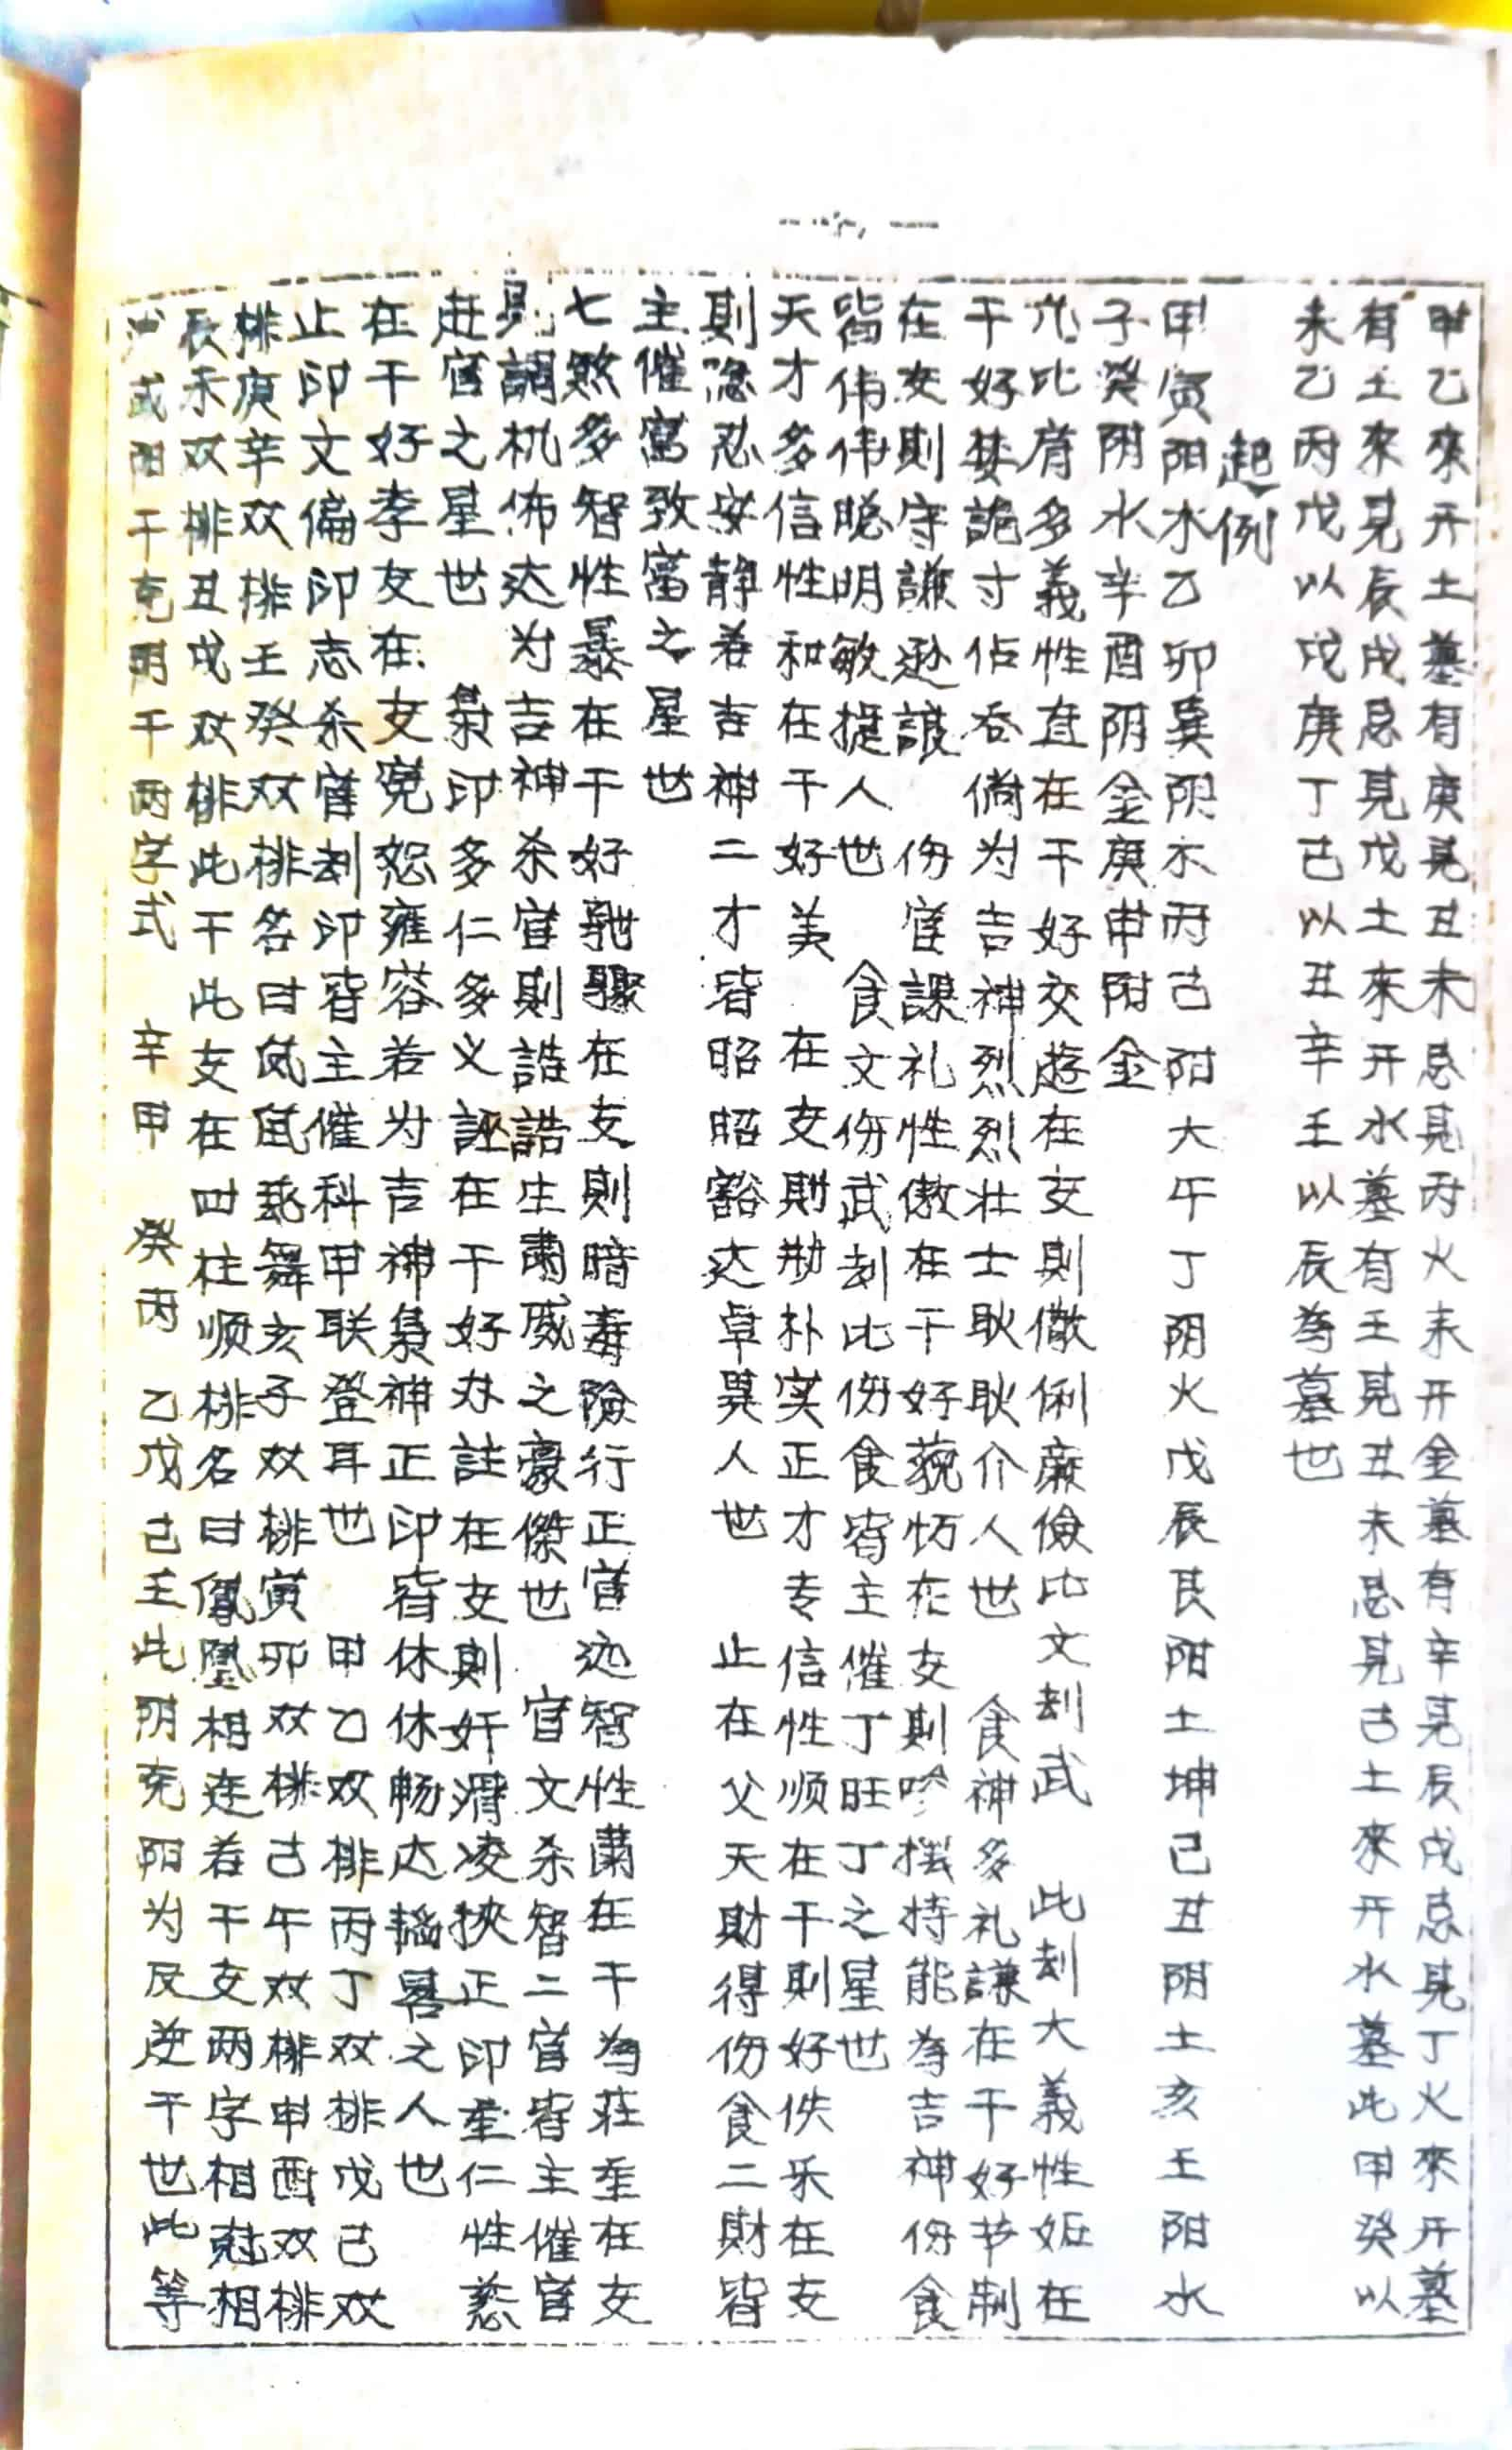 甲乙來开土墓有庚見丑未忌見丙火未开金墓有辛見辰戌忌見丁火來开墓
有土來見辰戌忌見戊土來开水墓有壬見丑未忌見己土來开水墓此甲癸以
未乙丙戊以戌庚丁己以丑辛壬以辰為墓也
起例
甲寅阳木乙卯巽阴木丙己阳大午丁阴火戊辰艮阳土坤己丑阴土亥壬阳水
子癸阴水辛酉阴金庚申阳金
比肩多義性直在干好交遊在支則儉俐廉儉比文刦武 此刦大義性姤在
干好婪詭寸佔吞倘为吉神烈烈壮士耿耿介人世 食神多礼謙在干好节制
在支則守謙遜 伤官謀礼性傲在干好藐在支則持能為吉神伤食
皆伟伟聪明敏捷人世 食文伤武刦比伤食皆主催丁旺丁之星世
天才多信性和在干好美 在支則勤朴实正才专信性顺在干則好佚乐在支
則隐忍安静若吉神二才皆昭昭豁达卓異人世 止在父天財得伤食二財皆
主催富致富之星世
七煞多智性暴在干好馳驟在支則暗毒險行正官智性肅在干為莊重在支
調机佈达为吉神杀官則誥誥生肅威之豪傑世 官文杀智二官皆主催官
赶官之星世 梟印多仁多义誣在干好註在支則奸滑凌挾正印重仁性慈
在干好李友在支寬恕雍容若为吉神梟神正印皆休休畅达韬畧之人也
止印文偏印志杀官刦印皆主催科甲联登耳也 甲乙双排丙丁双排戊己双
排庚辛双排壬癸双排名曰舞亥子双排寅卯双排己午双排申酉双排
辰未双排丑戌双排此干此支在四柱顺排名曰鳳凰相连若干支两字相尅相
或阳干克阴干两字式 辛甲 癸丙 乙戊己壬此阴克阳为反逆干也此等